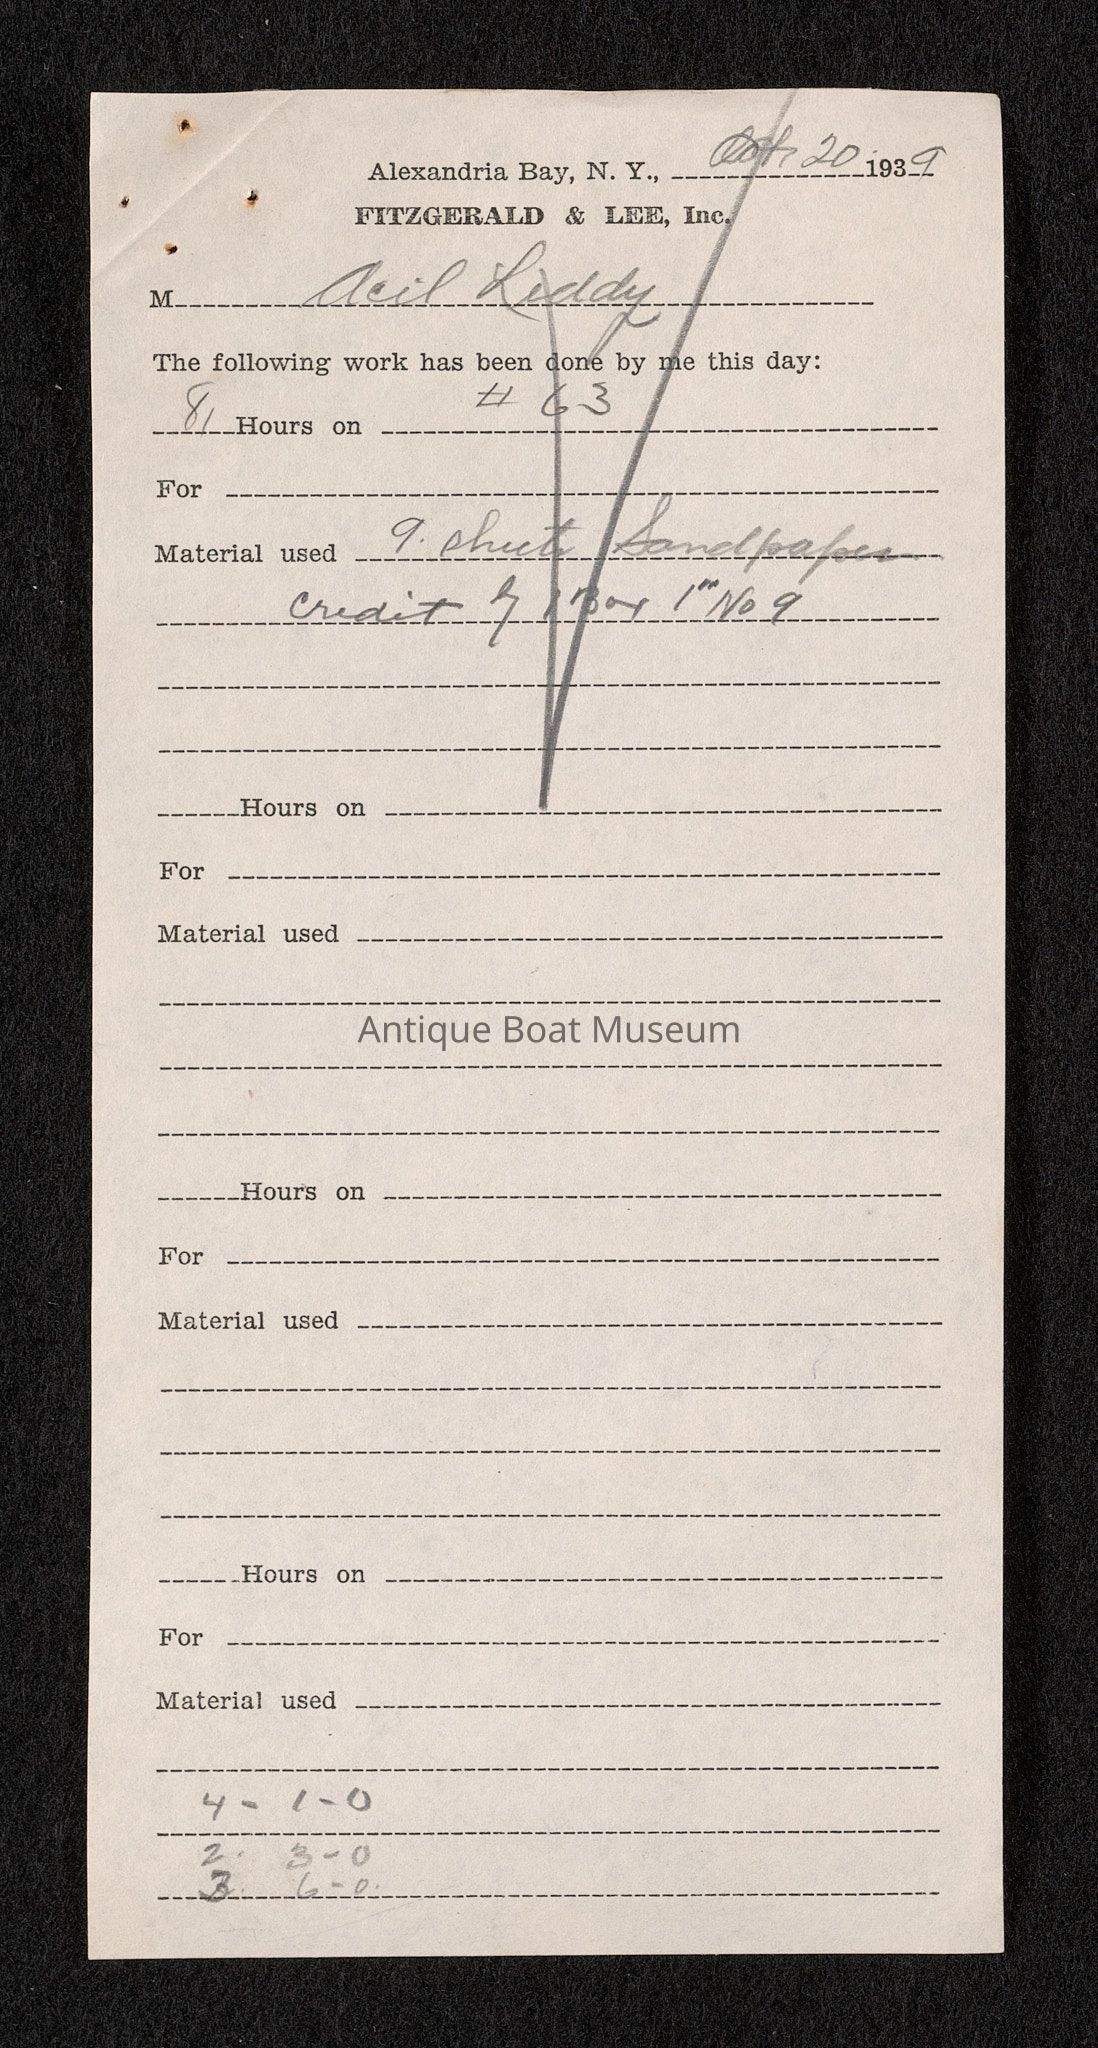 Alexandria Bay, N. Y., Oct. 20 1939
FITZGERALD & LEE, Inc.
M Acil Liddy
The following work has been done by me this day:
8 Hours on # 63
For
Material used 9. Sheets Sandpaper
Credit by 1 Box 1" No 9
Hours on
For
Material used
Antique Boat Museum
Hours on
For
Material used
Hours on
For
Material used
4 - 1-0
2. 3-0
3. 6-0.